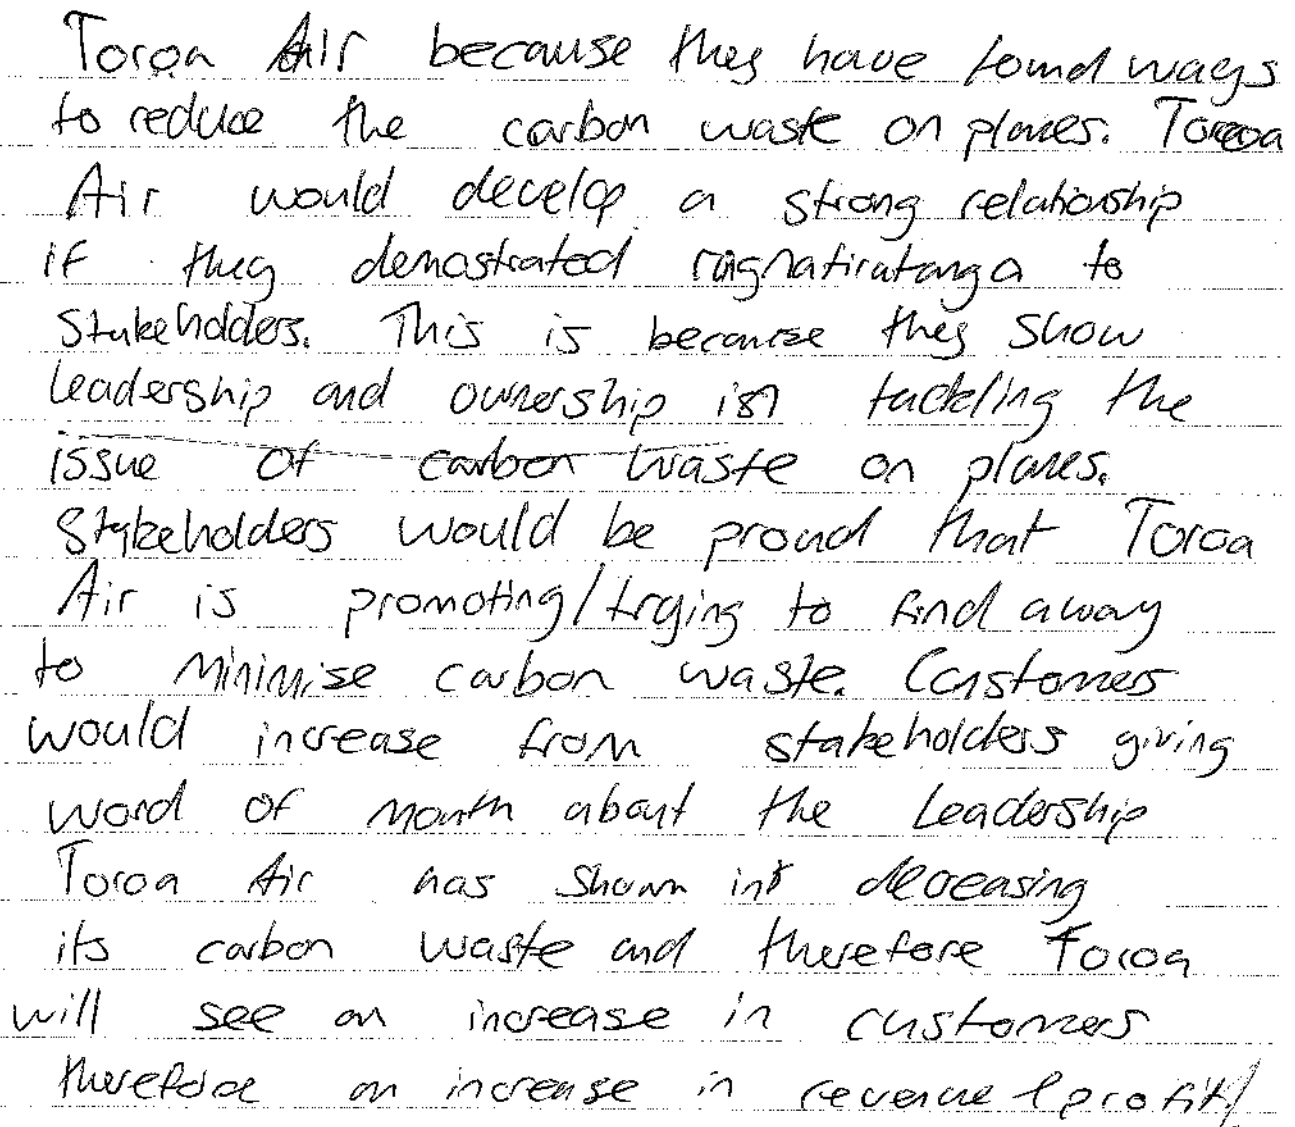 Toroa Air because they have found ways
to reduce the carbon waste on planes. Toroa
Air would develop a strong relationship
if they demostrated to
Stakeholders. This is because they show
leadership and ownership in tackling the
issue of carbon waste on planes.
Stakeholders would be proud that Toroa
Air is promoting/trying to find away
to minimise carbon waste. Customers
would increase from stakeholders giving
word of mouth about the Leadership
Toroa Air has shown in decreasing
its carbon waste and therefore Toroa
will see an increase in customers
therefore an increase in revenue & profit/